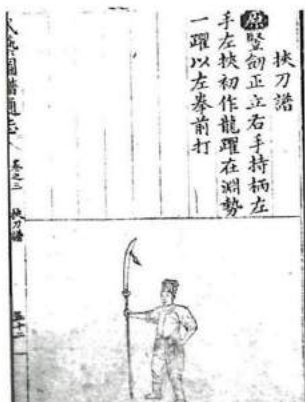 挾刀譜
原竪劒正立右手持柄左
手左挾初作龍躍在淵勢
一躍以左拳前打
武藝圖譜通志 卷之三 挾刀譜 五十二